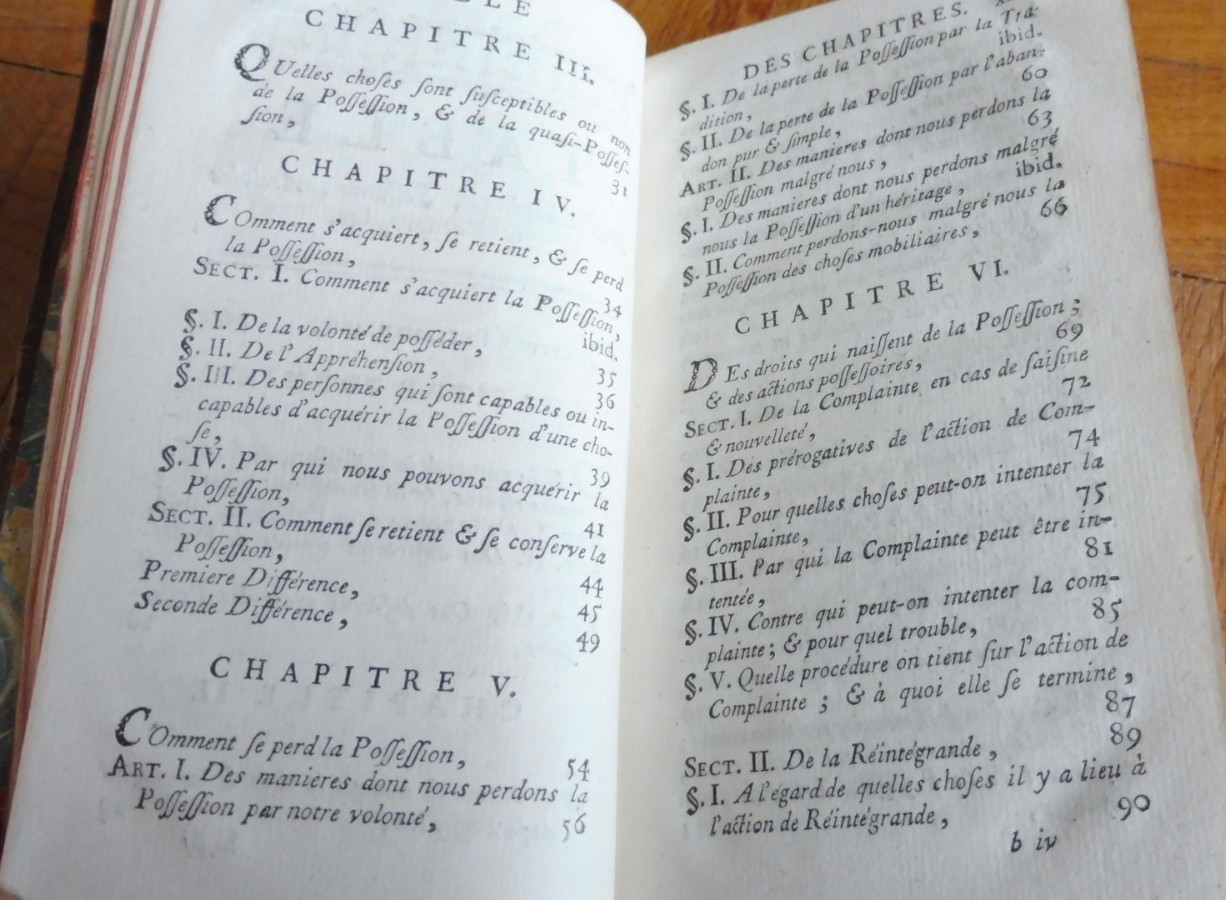 CHAPITRE III.
QUelles choſes ſont ſuſceptibles ou non
de la Poſſeſſion, & de la quaſi-Poſſeſ-
ſion, 31
CHAPITRE IV.
COmment s'acquiert, ſe retient, & ſe perd
la Poſſeſſion, 34
SECT. I. Comment s'acquiert la Poſſeſſion,
ibid.
§. I. De la volonté de poſſéder, 35
§. II. De l'Appréhenſion, 36
§. III. Des perſonnes qui ſont capables ou in-
capables d'acquérir la Poſſeſſion d'une cho-
ſe, 39
§. IV. Par qui nous pouvons acquérir la
Poſſeſſion, 41
SECT. II. Comment ſe retient & ſe conſerve la
Poſſeſſion, 44
Premiere Différence, 45
Seconde Différence, 49
CHAPITRE V.
COmment ſe perd la Poſſeſſion, 54
ART. I. Des manieres dont nous perdons la
Poſſeſſion par notre volonté, 56
DES CHAPITRES.
§. I. De la perte de la Poſſeſſion par la Tra-
dition, ibid.
§. II. De la perte de la Poſſeſſion par l'aban-
don pur & ſimple, 60
ART. II. Des manieres dont nous perdons la
Poſſeſſion malgré nous, 63
§. I. Des manieres dont nous perdons malgré
nous la Poſſeſſion d'un héritage, ibid.
§. II. Comment perdons-nous malgré nous la
Poſſeſſion des choſes mobiliaires, 66
CHAPITRE VI.
DEs droits qui naiſſent de la Poſſeſſion ;
& des actions poſſeſſoires, 69
SECT. I. De la Complainte en cas de ſaiſine
& nouvelleté, 72
§. I. Des prérogatives de l'action de Com-
plainte, 74
§. II. Pour quelles choſes peut-on intenter la
Complainte, 75
§. III. Par qui la Complainte peut être in-
tentée, 81
§. IV. Contre qui peut-on intenter la com-
plainte ; & pour quel trouble, 85
§. V. Quelle procédure on tient ſur l'action de
Complainte ; & à quoi elle ſe termine,
87
SECT. II. De la Réintégrande, 89
§. I. A l'égard de quelles choſes il y a lieu à
l'action de Réintégrande, 90
b iv